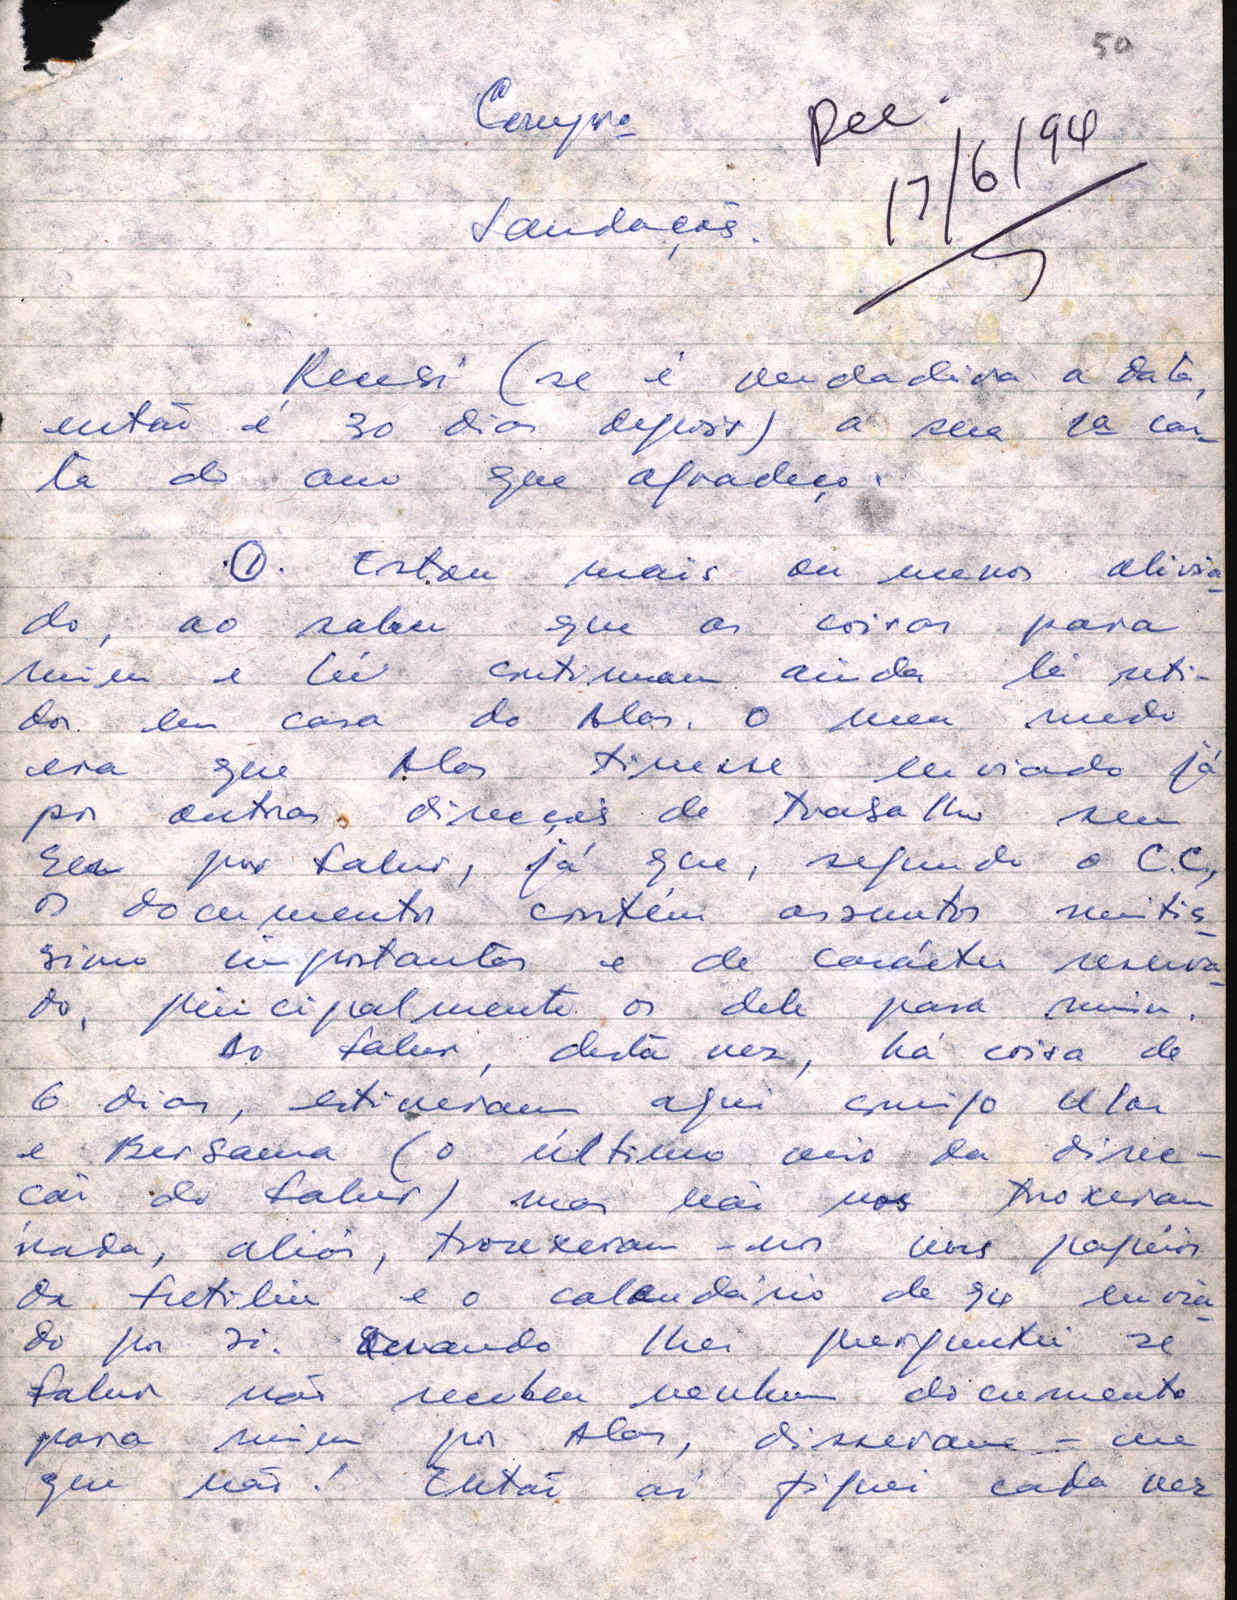 50
Compo
Rec.
17/6/94
Saudações.
Recebi (se é verdadeira a data,
então é 30 dias depois) a sua 1a car-
ta do ano que agradeço.
①. Estou mais ou menos alivia-
do, ao saber que as coisas para
mim e continuam ainda lá reti-
dos em casa do Alas. O meu medo
era que Alas tivesse enviado já
por outras direcções de trabalho sem
ser por Sabur, já que, segundo o C.C,
os documentos contém assuntos muitis-
simo importantes e de carácter reserva-
do, principalmente os dele para mim.
Do Sabur, desta vez, há coisa de
6 dias, estiveram aqui comigo
e Bersama (o último vivo da direc-
cão do Sabur) mas não nos troxeram
nada, aliás, trouxeram-nos uns papéis
da Fretilin e o calendário de 94 envia-
do por si. Quando lhes perguntei se
Sabur não recebeu nenhum documento
para mim por Alas, disseram-me
que não! Então aí fiquei cada vez